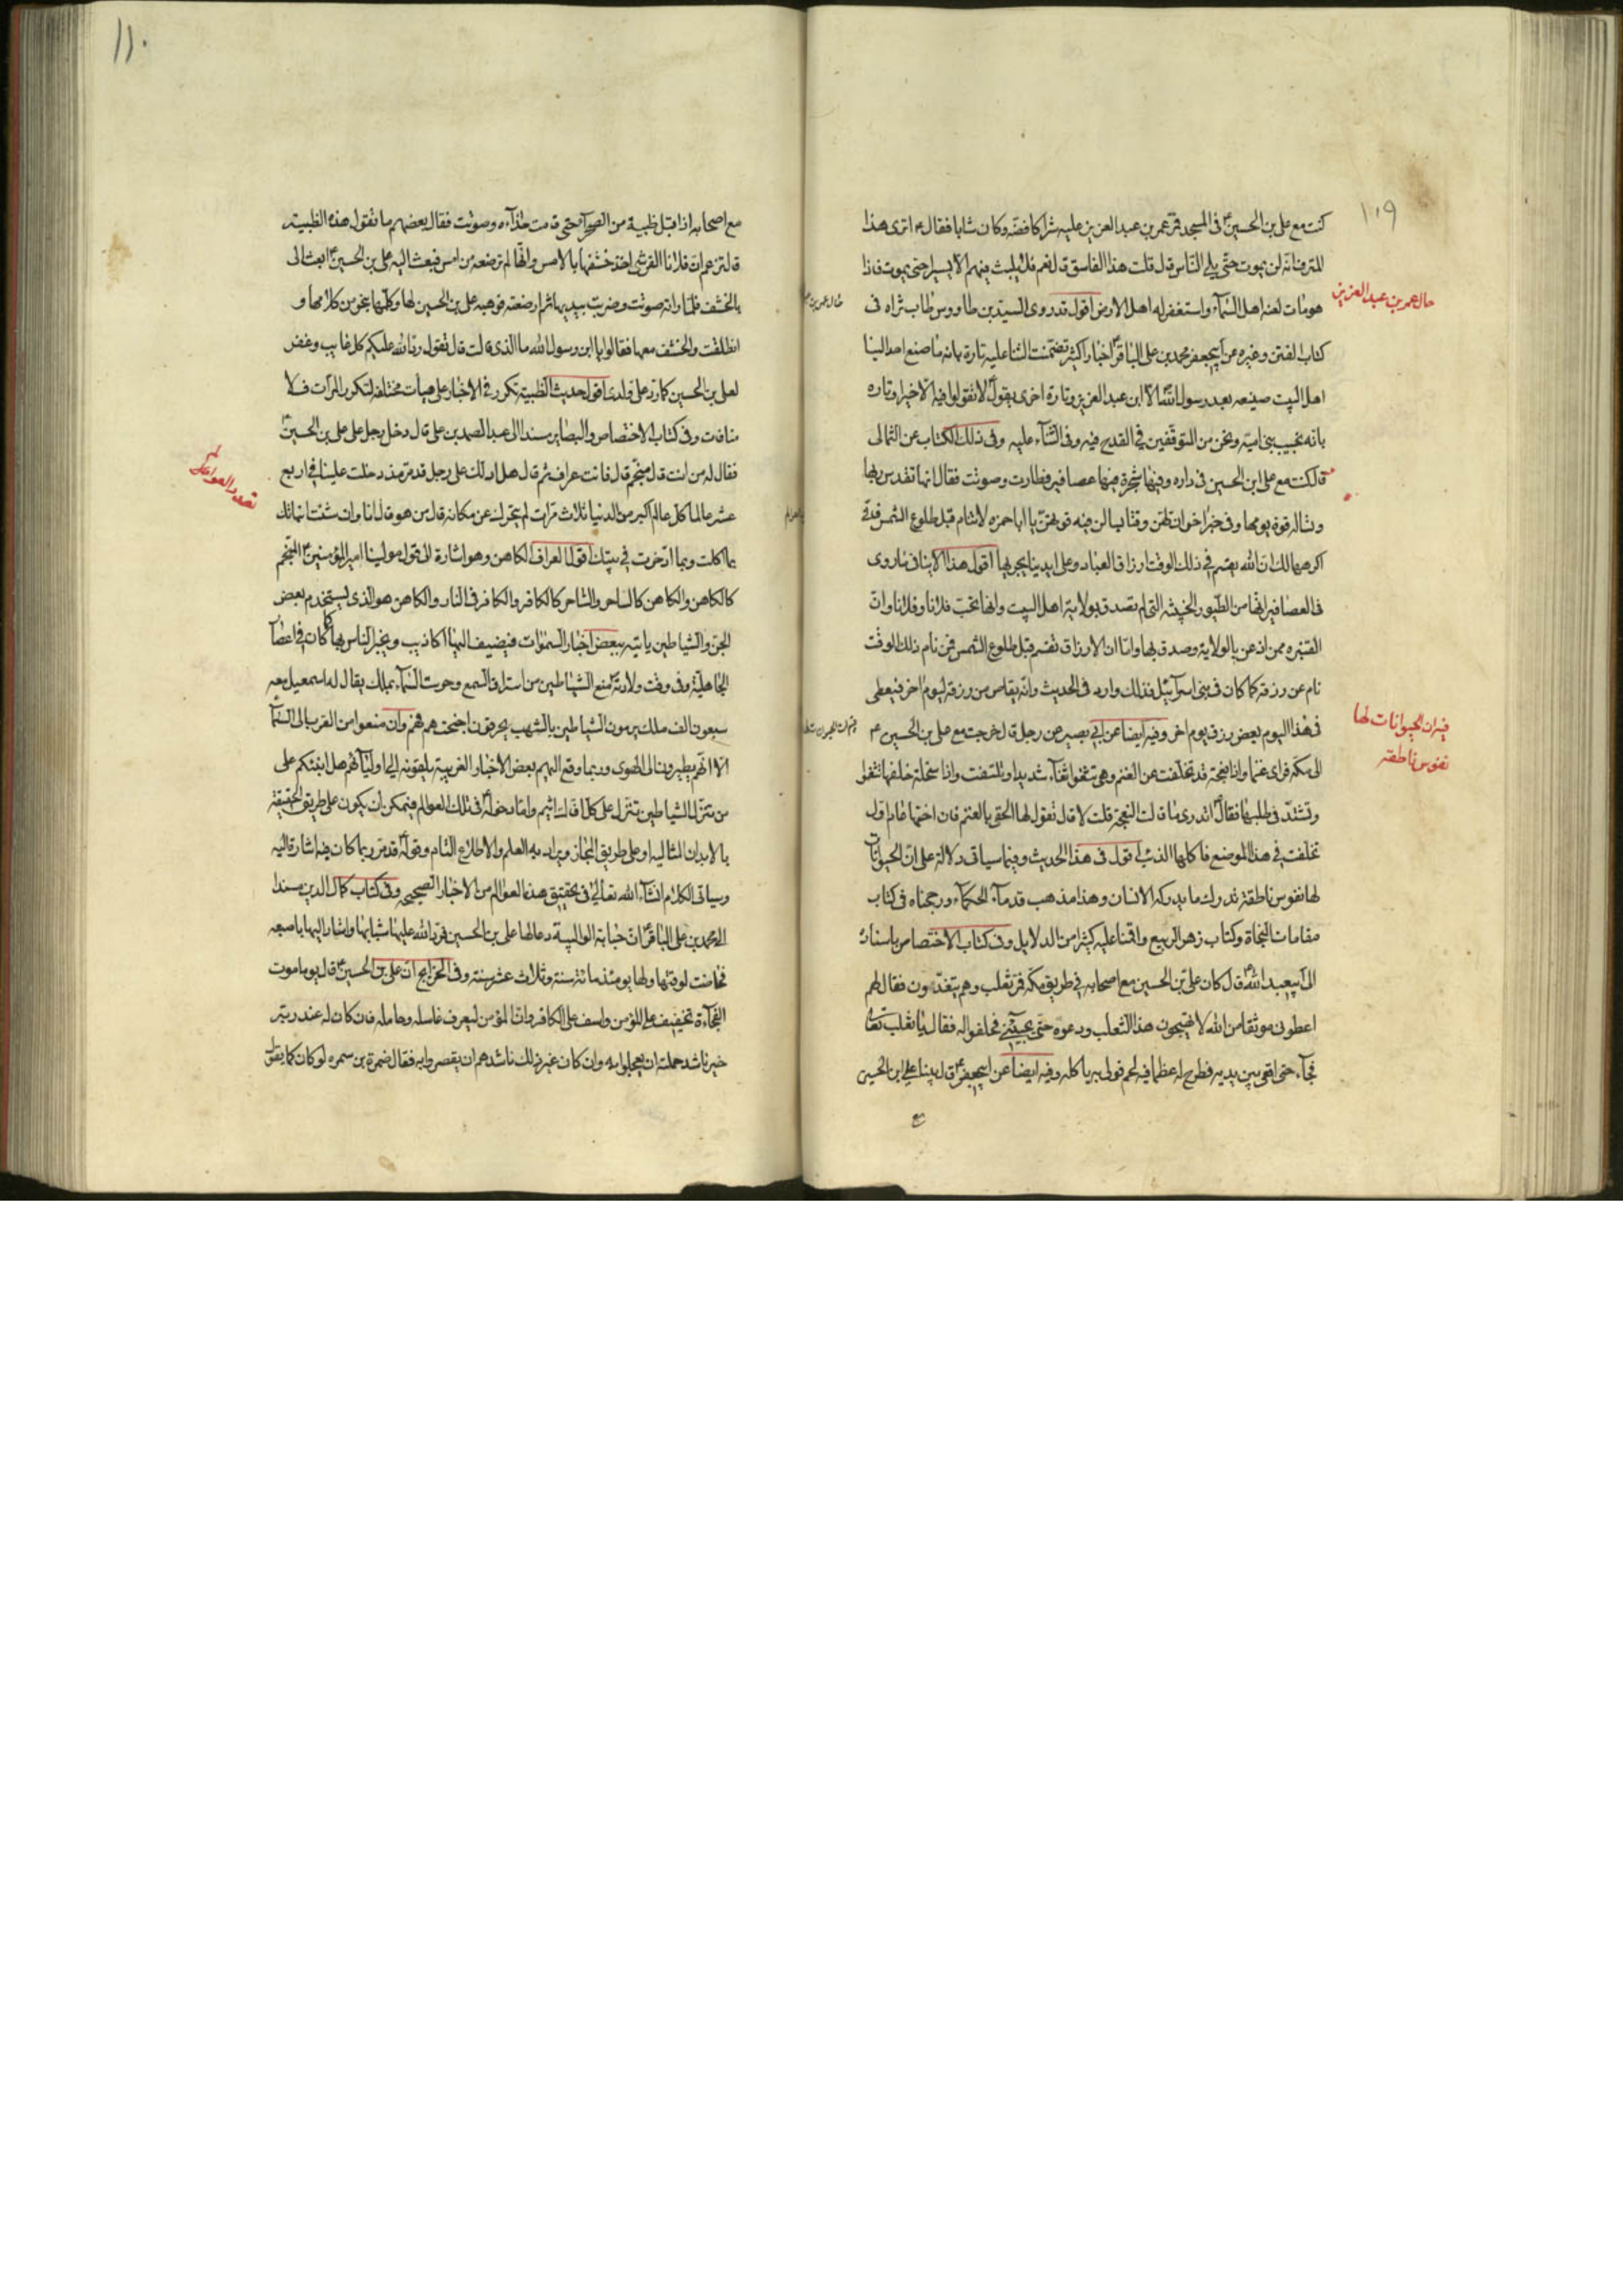 ١٠٩
كنت مع على بن الحسين ع فى المسجد فمر عمر بن عبد العزيز عليه شراكا فضه وكان شابا فقال ع اترى هذا
المترف انه لن يموت حتّى يلى النّاس قال قلت هذا الفاسق قال نعم فلا يلبث فيهم الا يسيرا حتى يموت فاذا
هو مات لعنه اهل السّماء واستغفر له اهل الارض اقول قد روى السيّد بن طاووس طاب ثراه فى
حال عمر بن عبد العزيز
كتاب الفتن وغيره عن ابيجعفر محمد بن على الباقر ع اخبارا كثيرة تضمّنت الثناء عليه تارة بانه ما صنع احد الينا
اهل البيت صنيعه بعد رسول الله الا ابن عبد العزيز وتارة اخرى يقول ع لا تقولوا فيه الّا خيرا وتاره
بانه نجيب بنى اميّه ونحن من المتوقّفين فى القدح فيه وفى الثّناء عليه وفى ذلك الكتاب عن الثمالى
قال كنت مع على ابن الحسين فى داره وفيها شجرة فيها عصافير فطارت وصوتت فقال انها تقدس ربها
وتساله قوة يومها وفى خبر اخر ان تلقن وقتا يسالن فيه قوتهنّ يا ابا حمزه لا تنام قبل طلوع الشمس فانى
اكرهها لك ان الله يقسم فى ذلك الوقت ارزاق العباد وعلى ايدينا يجريها اقول هذا لا ينافى ما روى
فى العصافير انها من الطّيور الخبيثه التى لم تصدق بولاية اهل البيت وانها تحب فلانا وفلانا وانّ
القنبره ممن اذعن بالولاية وصدق بها وامّا ان الارزاق تقسم قبل طلوع الشمس فمن نام ذلك الوقت
نام عن رزقه كما كان فى بنى اسرآئيل فذلك وارد فى الحديث وانّه يقاس من رزقه ليوم اخر فيعطى
فى هذا اليوم بعض رزق يوم اخر وفيه ايضا عن ابى بصير عن رجل قال خرجت مع على بن الحسين ع
فيه ان الحيوانات لها
نفوس ناطقه
الى مكه فراى غنما واذا نعجة قد تخلّفت عن الغنم وهى تثغو ثغآء شديدا وتلتفت واذا سخلة خلفها تثغوا
وتشتدّ فى طلبها فقال ع اتدرى ما قالت النعجة قلت لا قال تقول لها الحقى بالغنم فان اختها عام اول
تخلفت فى هذا الموضع فاكلها الذئب اقول فى هذا الحديث وفيما سياتى دلالة على انّ الحيوانات
لها نفوس ناطقة تدرك ما يدركه الانسان وهذا مذهب قدمآء الحكمآء ورجحناه فى كتاب
مقامات النجاة وكتاب زهر الربيع واقمنا عليه كثيرا من الدلايل وفى كتاب الاختصاص باسناده
الى ابيعبد الله ع قال كان علىّ بن الحسين مع اصحابه فى طريق مكه فمر ثعلب وهم يتغدّون فقال لهم
اعطونى موثقا من الله لا تهيجون هذا الثعلب ودعوه حتّى يجيئنى فحلفوا له فقال يا ثعلب تعال
فجآء حتى اقعى بين يديه فطرح له عظما فيه لحم فولى به ياكله وفيه ايضا عن ابيجعفر ع قال بينا على ابن الحسين
مع
١١٠
مع اصحابه اذ اقبل ظبية من الصّحرآء حتى قامت حذآءه وصوتت فقال بعضهم ما تقول هذه الظبية
قال تزعم ان فلانا القرشى اخذ خشفها بالامس وانّها لم ترضعه من امس فبعث اليه على بن الحسين ع ابعث الى
بالخشف فلمّا راته صوتت وضربت بيديها ثم ارضعته فوهبه على بن الحسين لها وكلّمها بنحو من كلامها و
انطلقت والخشف معها فقالوا يا ابن رسول الله ما الذى قالت قال تقول ردّ الله عليكم كل غايب وغفر
لعلى بن الحسين كما رد على ولدى اقول حديث الظبية تكرر فى الاخبار على هيئات مختلفه لتكرر المرّات فلا
منافات وفى كتاب الاختصاص والبصاير مسندا الى عبد الصمد بن على قال دخل رجل على على بن الحسين ع
فقال له من انت قال منجّم قال فانت عراف ثم قال هل ادلّك على رجل قد مرّ منذ دخلت علينا فى اربع
عشر عالما كل عالم اكبر من الدنيا ثلاث مرّات لم يتحرك عن مكانه قال من هو قال انا وان شئت انباتك
بما اكلت وبما ادّخرت فى بيتك اقول العراف الكاهن وهو اشارة الى قول مولينا امير المؤمنين ع المنجّم
كالكاهن والكاهن كالساحر والسّاحر كالكافر والكافر فى النار والكاهن هو الذى يستخدم بعض
الجنّ والشياطين ياتيه ببعض اخبار السموات فيضيف اليها اكاذيب ويخبر النّاس بها كما كان فى اعصار
الجاهلية وفى وقت ولادته ع منع الشياطين من استراق السّمع وحرست السّمآء بملك يقال له اسمعيل معه
سبعون الف ملك يرمون الشياطين بالشهب يحرقون اجنحتهم فهم وان منعوا من القرب الى السّمآء
الّا انّهم يطيرون الى الهوى وربما وقع اليهم بعض الاخبار الغريبة يلقونه الى اوليآئهم هل انبئكم على
من تنزّل الشياطين تنزل على كل افاك اثيم وامّا دخوله ع فى تلك العوالم فيمكن ان يكون على طريق الحقيقة
بالابدان المثاليه او على طريق المجاز ويراد به العلم والاطلاع التام وقوله قد مرّ ربما كان فيه اشارة اليه
وسياتى الكلام انشآء الله تعالى فى تحقيق هذه العوالم من الاخبار الصحيحه وفى كتاب كمال الدين مسندا
الى محمد بن على الباقر ع ان حبابة الوالبية دعا لها على بن الحسين فردّ الله عليها شبابها واشار اليها باصبعه
فحاضت لوقتها ولها يومئذ مائة سنة وثلاث عشر سنة وفى الخرايج انّ على بن الحسين ع قال يوما موت
الفجآءة تخفيف على المؤمن واسف على الكافر وان المؤمن ليعرف غاسله وحامله فان كان له عند ربّه
خير ناشد حملته ان يعجلوا به وان كان غير ذلك ناشدهم ان يقصروا به فقال ضمرة بن سمره لو كان كما يقول